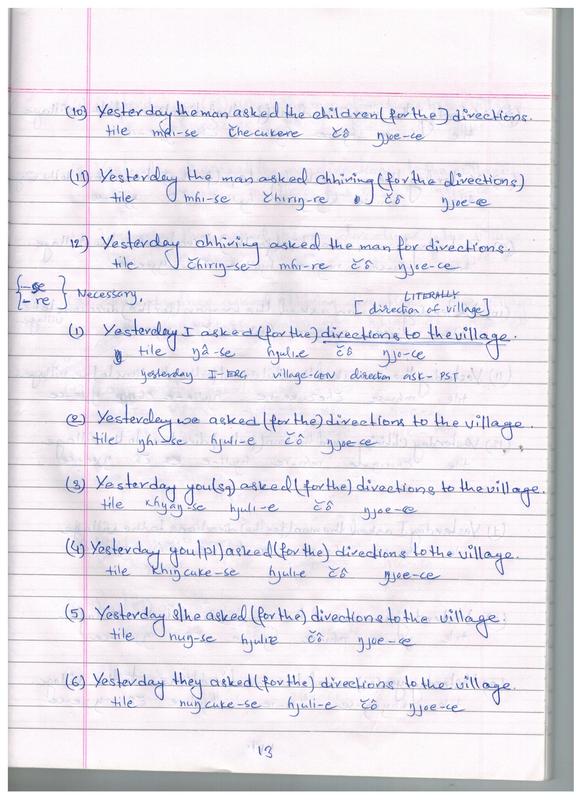 (10) Yesterday the man asked the children (for the) directions.
tile mɦi-se čhecukere čô ŋjoe-ce
(11) Yesterday the man asked chhiring (for the directions)
tile mɦi-se čhiriŋ-re čô ŋjoe-ce
12) Yesterday chhiring asked the man for directions.
tile čhiriŋ-se mɦi-re čô ŋjoe-ce
{-se
-re} Necessary.
LITERALLY
[direction of village]
(1) Yesterday I asked (for the) directions to the village.
tile ŋâ-se ɦjuli.e čô ŋjo-ce
yesterday I-ERG village-GEN direction ask-PST
(2) Yesterday we asked (for the) directions to the village.
tile ŋhi-se ɦjuli-e čô ŋjoe-ce
(3) Yesterday you(sg) asked (for the) directions to the village.
tile khyaŋ-se ɦjuli-e čô ŋjoe-ce
(4) Yesterday you(pl) asked (for the) directions to the village.
tile khiŋcuke-se ɦjulie čô ŋjoe-ce
(5) Yesterday s/he asked (for the) directions to the village.
tile nuŋ-se ɦjulie čô ŋjoe-ce
(6) Yesterday they asked (for the) directions to the village.
tile nuŋcuke-se ɦjuli-e čô ŋjoe-ce
13